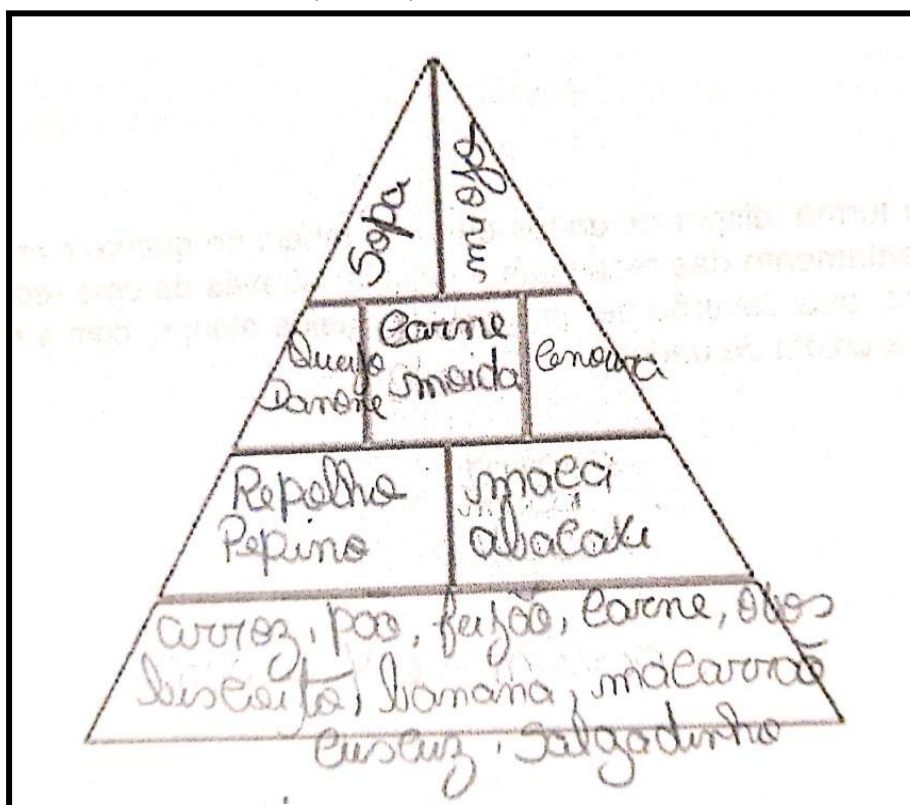 Sopa
miojo
Queijo
Danone
Carne
moida
Cenoura
Repolho
Pepino
maçã
abacaxi
arroz, pão, feijão, carne, ovos
biscoito, banana, macarrão
cuscuz, salgadinho